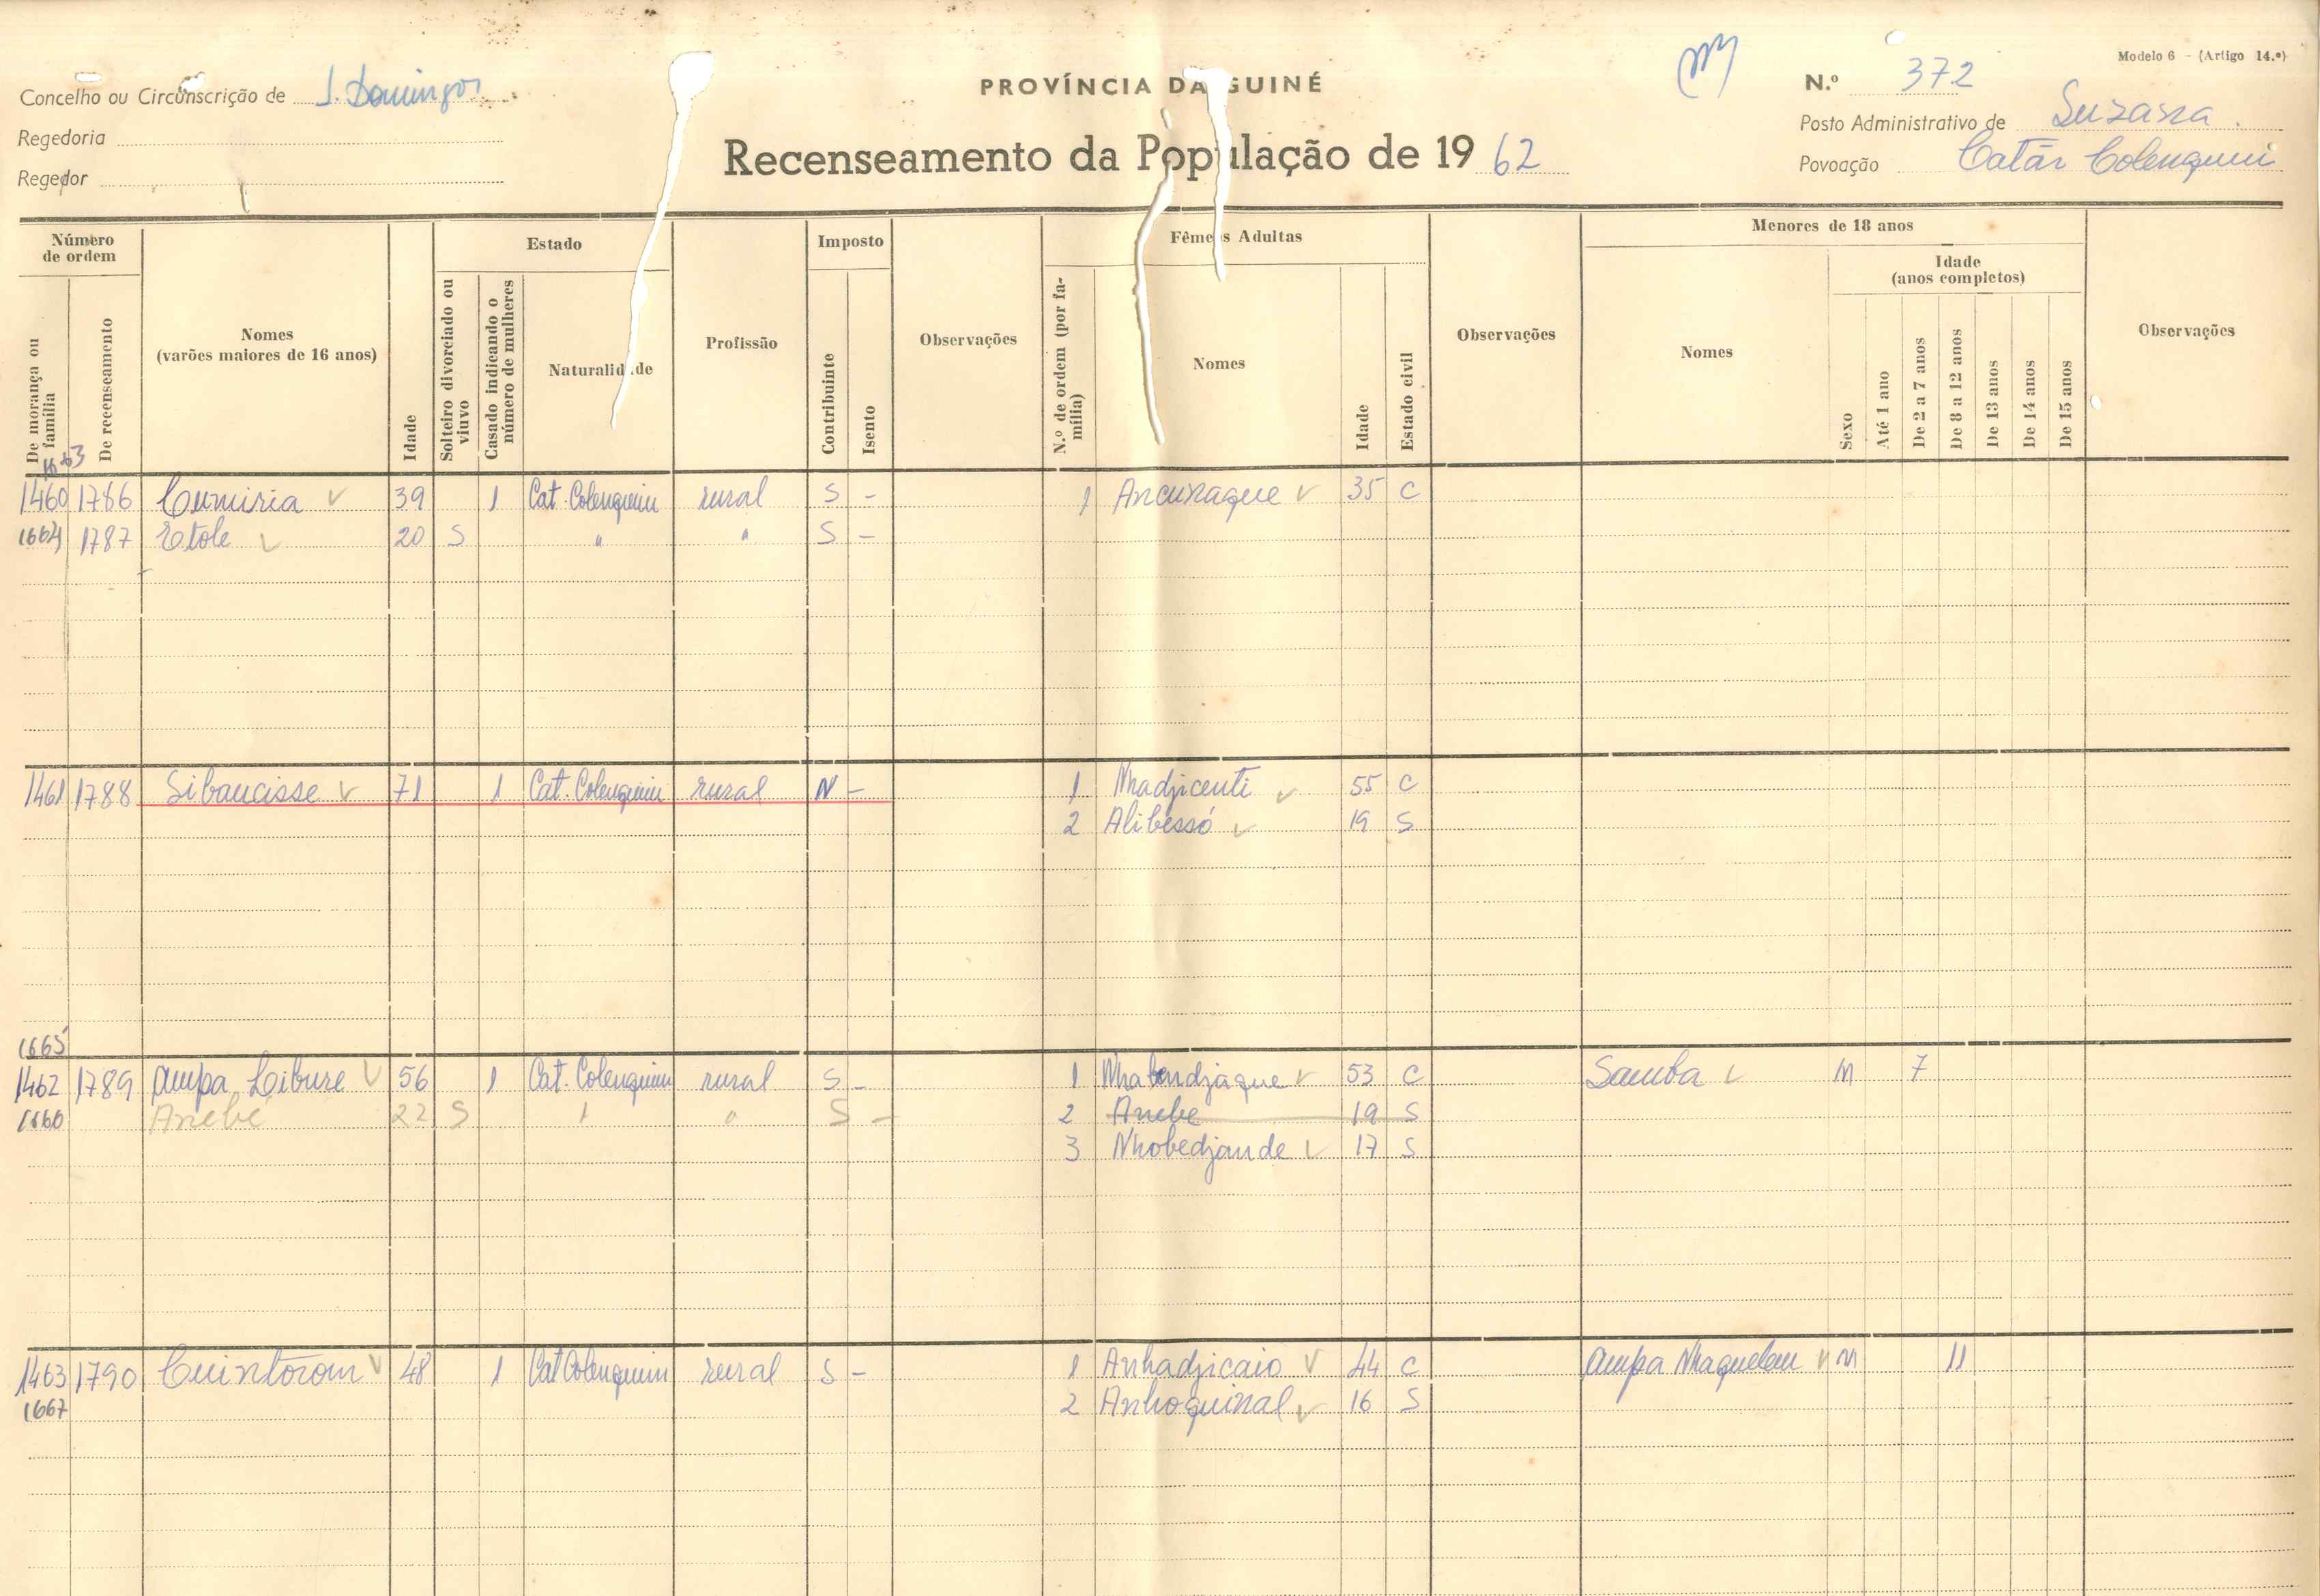 Modelo 6 - (Artigo 14.º)
Concelho ou Circunscrição de S. Domingos
PROVÍNCIA DA GUINÉ
N.º 372
Regedoria
Recenseamento da População de 1962
Posto Administrativo de Suzana.
Regedor
Povoação Catār Colenquim
Número de ordem
De morança ou família
De recenseamento
Nomes (varões maiores de 16 anos)
Idade
Estado
Solteiro divorciado ou viuvo
Casado indicando o número de mulheres
Naturalidade
Profissão
Imposto
Contribuinte
Isento
Observações
Fêmeas Adultas
N.º de ordem (por família)
Nomes
Idade
Estado civil
Observações
Menores de 18 anos
Nomes
Sexo
Idade (anos completos)
Até 1 ano
De 2 a 7 anos
De 8 a 12 anos
De 13 anos
De 14 anos
De 15 anos
Observações
1460 1786 Cumiria 39 1 Cat. Colenquim rural S - 1 Ancunaque 35 C
1664 1787 Etole 20 S " " S -
1461 1788 Sibaucisse 71 1 Cat. Colenquim rural N - 1 Nhadjicenti 55 C
2 Alibessó 19 S
1665
1462 1789 Ampa Libure 56 1 Cat. Colenquim rural S - 1 Nhabendjaque 53 C Samba M 7
Anebé 22 S " S - 2 Anebe 19 S
3 Nhobedjande 17 S
1463 1790 Cuintorom 48 1 Cat Colenquim rural S - 1 Anhadjicaio 44 C Ampa Nhaquelem M 11
1667 2 Anhoquinal 16 S